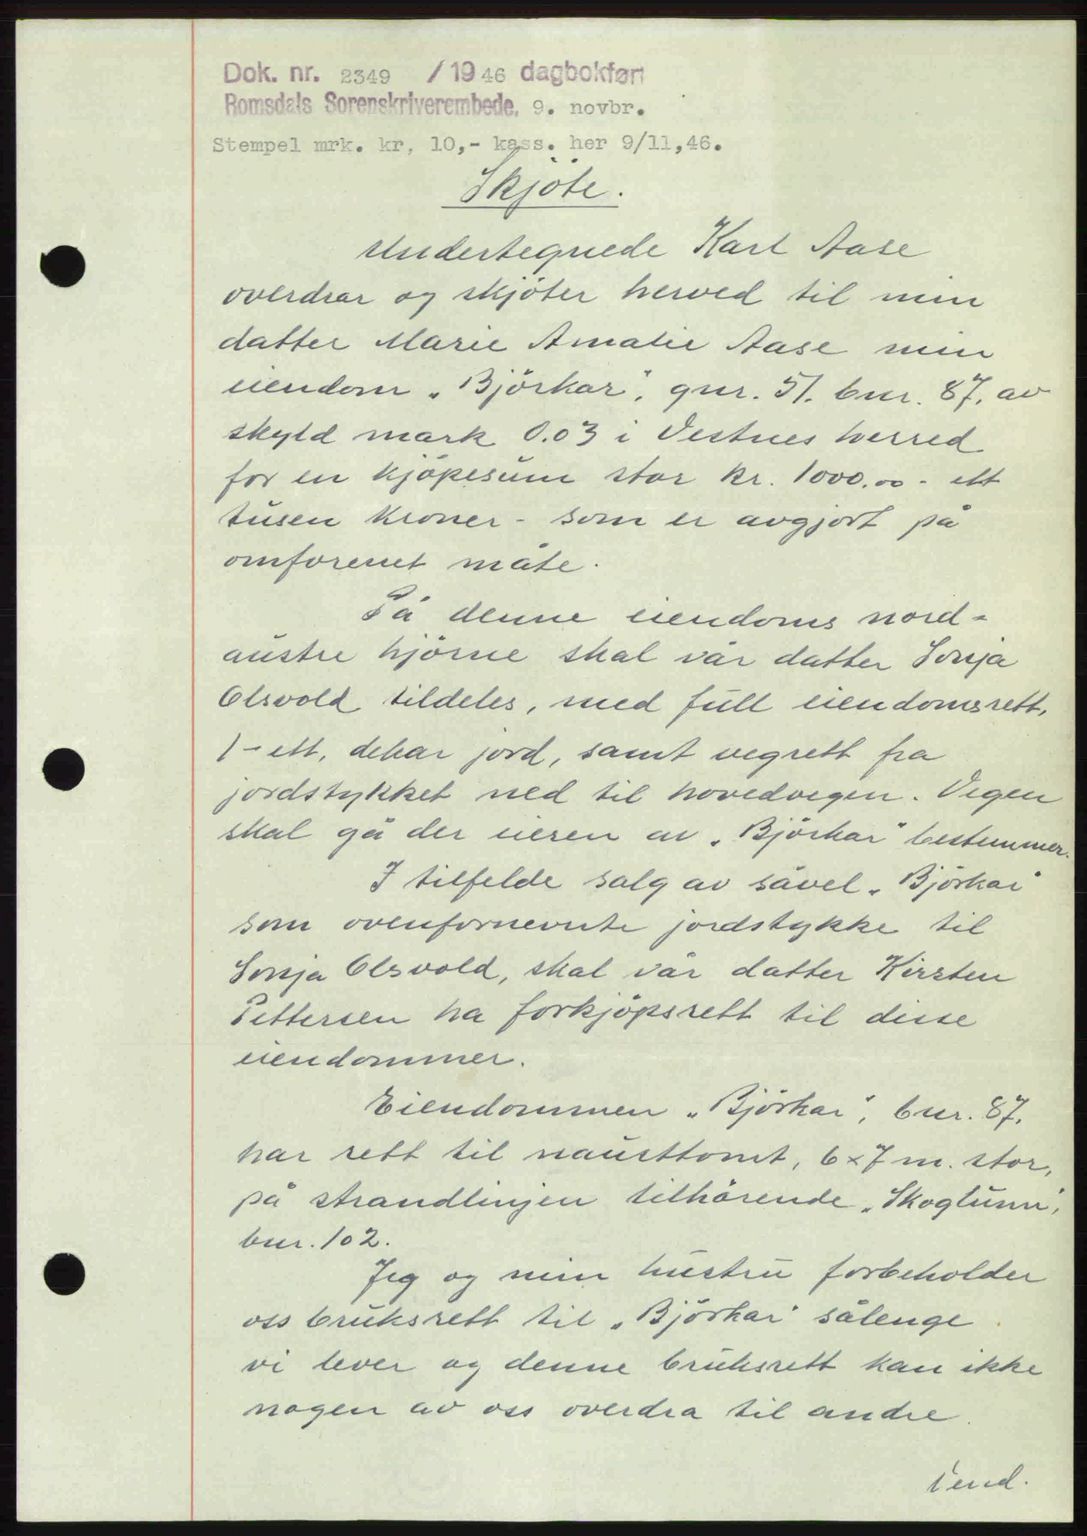 Dok. nr. 2349 / 1946 dagbokført
Romsdals Sorenskriverembede, 9. novbr.
Stempel mrk. kr. 10,- kass. her 9/11,46.
Skjöte.
Undertegnede Karl Aase
overdrar og skjöter herved til min
datter Marie Amalie Aase min
eiendom „Björkar", gnr. 51. bnr. 87, av
skyld mark 0.03 i Vestnes herred
for en kjöpesum stor kr. 1000.00 - ett
tusen kroner - som er avgjort på
omforenet måte.
På denne eiendoms nord-
austre hjörne skal vår datter Sonja
Olsvold tildeles, med full eiendomsrett,
1 - ett, dekar jord, samt vegrett fra
jordstykket ned til hovedvegen. Vegen
skal gå der eieren av „Björkar" bestemmer.
I tilfelde salg av såvel „Björkar"
som ovenfornevnte jordstykke til
Sonja Olsvold, skal vår datter Kirsten
Pettersen ha forkjöpsrett til disse
eiendommer.
Eiendommen „Björkar", bnr. 87,
har rett til nausttomt, 6x7 m. stor,
på strandlinjen tilhörende „Skoglunn",
bnr. 102.
Jeg og min hustru forbeholder
oss bruksrett til „Björkar" sålenge
vi lever og denne bruksrett kan ikke
nogen av oss overdra til andre.
Vend.